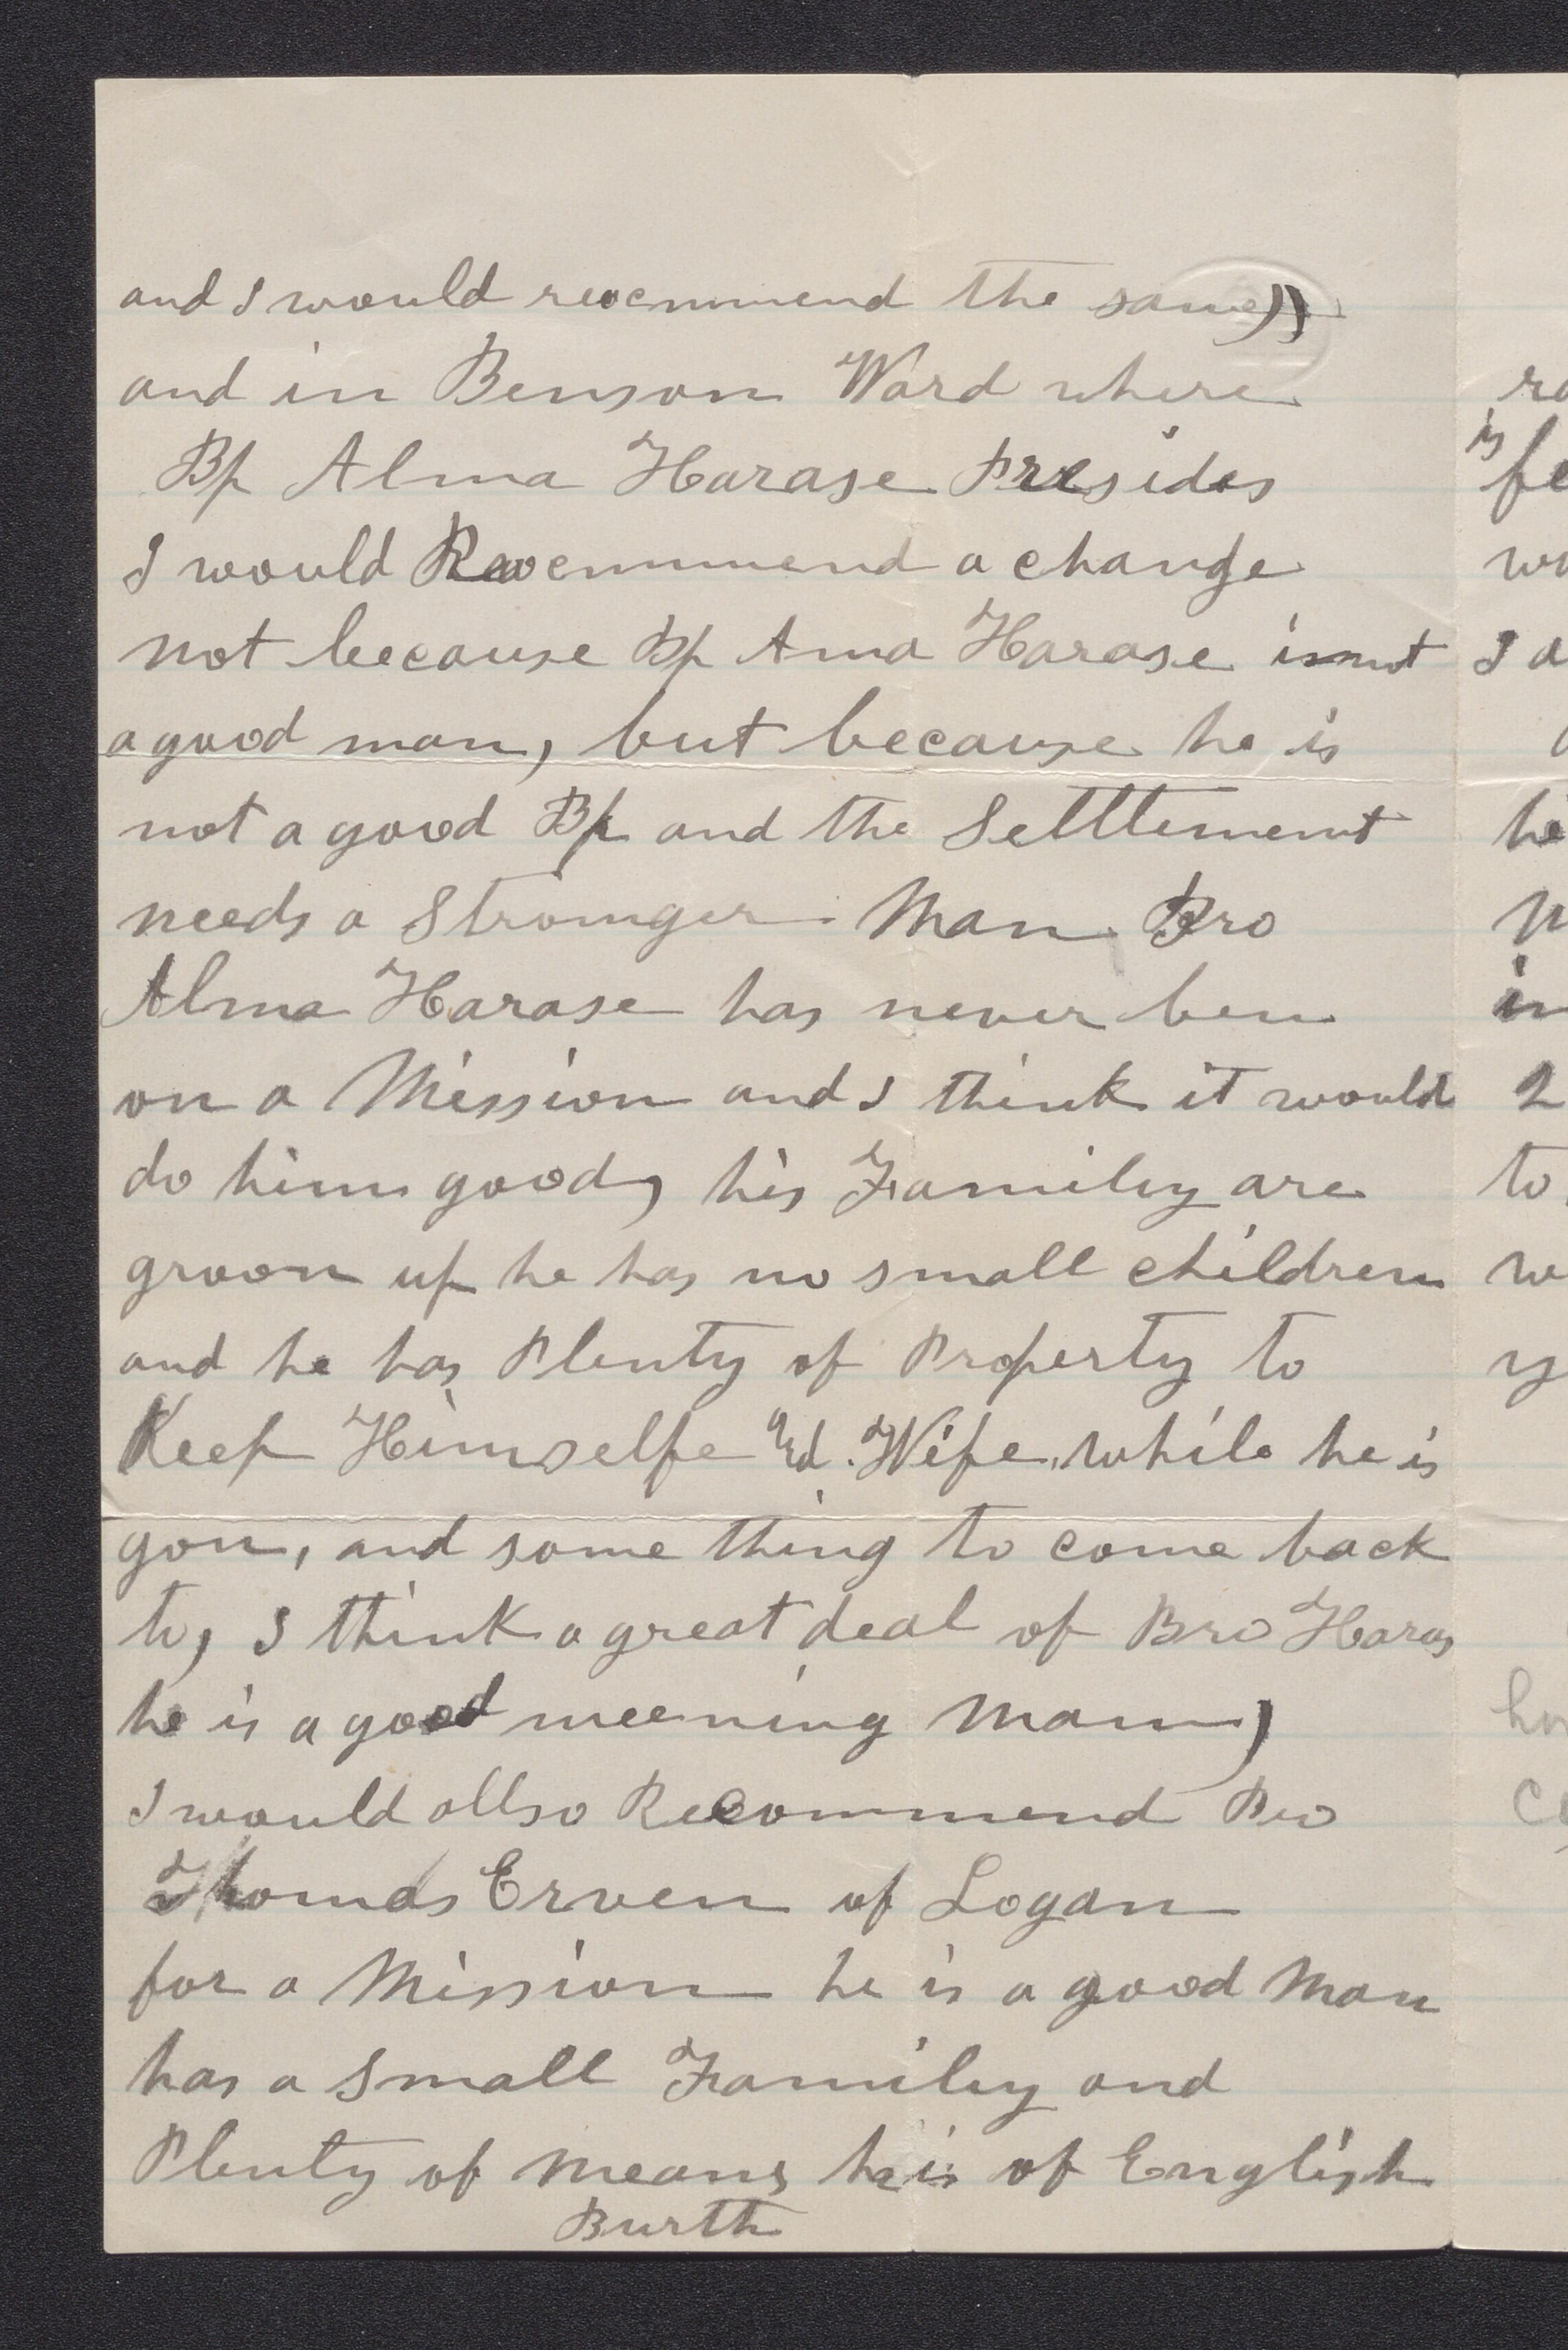 and I would recemmend the same))
and in Benson Ward where
Bp Alma Harase Presides
I would Recemmend a change
not because Bp Ama Harase is not
a good man, but because he is
not a good Bp and the Settlement
needs a Stronger Man Bro
Alma Harase has never ben
on a Mission and I think it would
do him good, his Familey are
groon up he has no small children
and he has Plenty of Property to
Keep Himselfe and Wife, while he is
gon, and some thing to come back
to, I think a great deal of Bro Haras
he is a good meening man)
I would allso Recommend Bro
Thomas Erven of Logan
for a Mission he is a good Man
has a small Familey and
Plenty of means he is of English
Burth
is
fe
I a
he
in
2
to
y